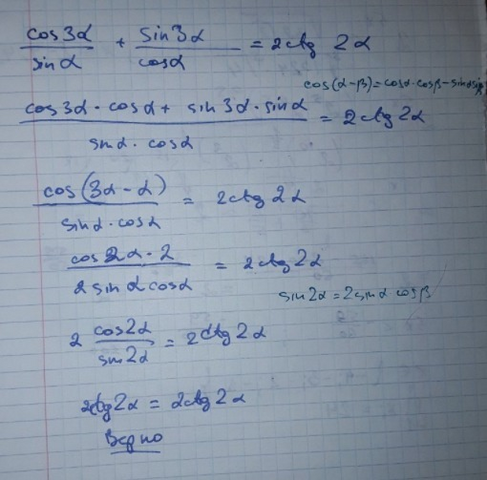 cos3α/sinα + sin3α/cosα = 2ctg 2α
cos(α-β)=cosα·cosβ-sinαsinβ
(cos3α·cosα + sin3α·sinα)/(sinα·cosα) = 2ctg2α
cos(3α-α)/(sinα·cosα) = 2ctg2α
(cos2α·2)/(2sinαcosα) = 2ctg2α
sin2α=2sinα cosβ
2 cos2α/sin2α = 2ctg2α
2ctg2α = 2ctg2α
Верно